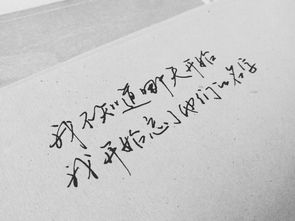 我不知道哪天开始
我开始忘了他们的名字